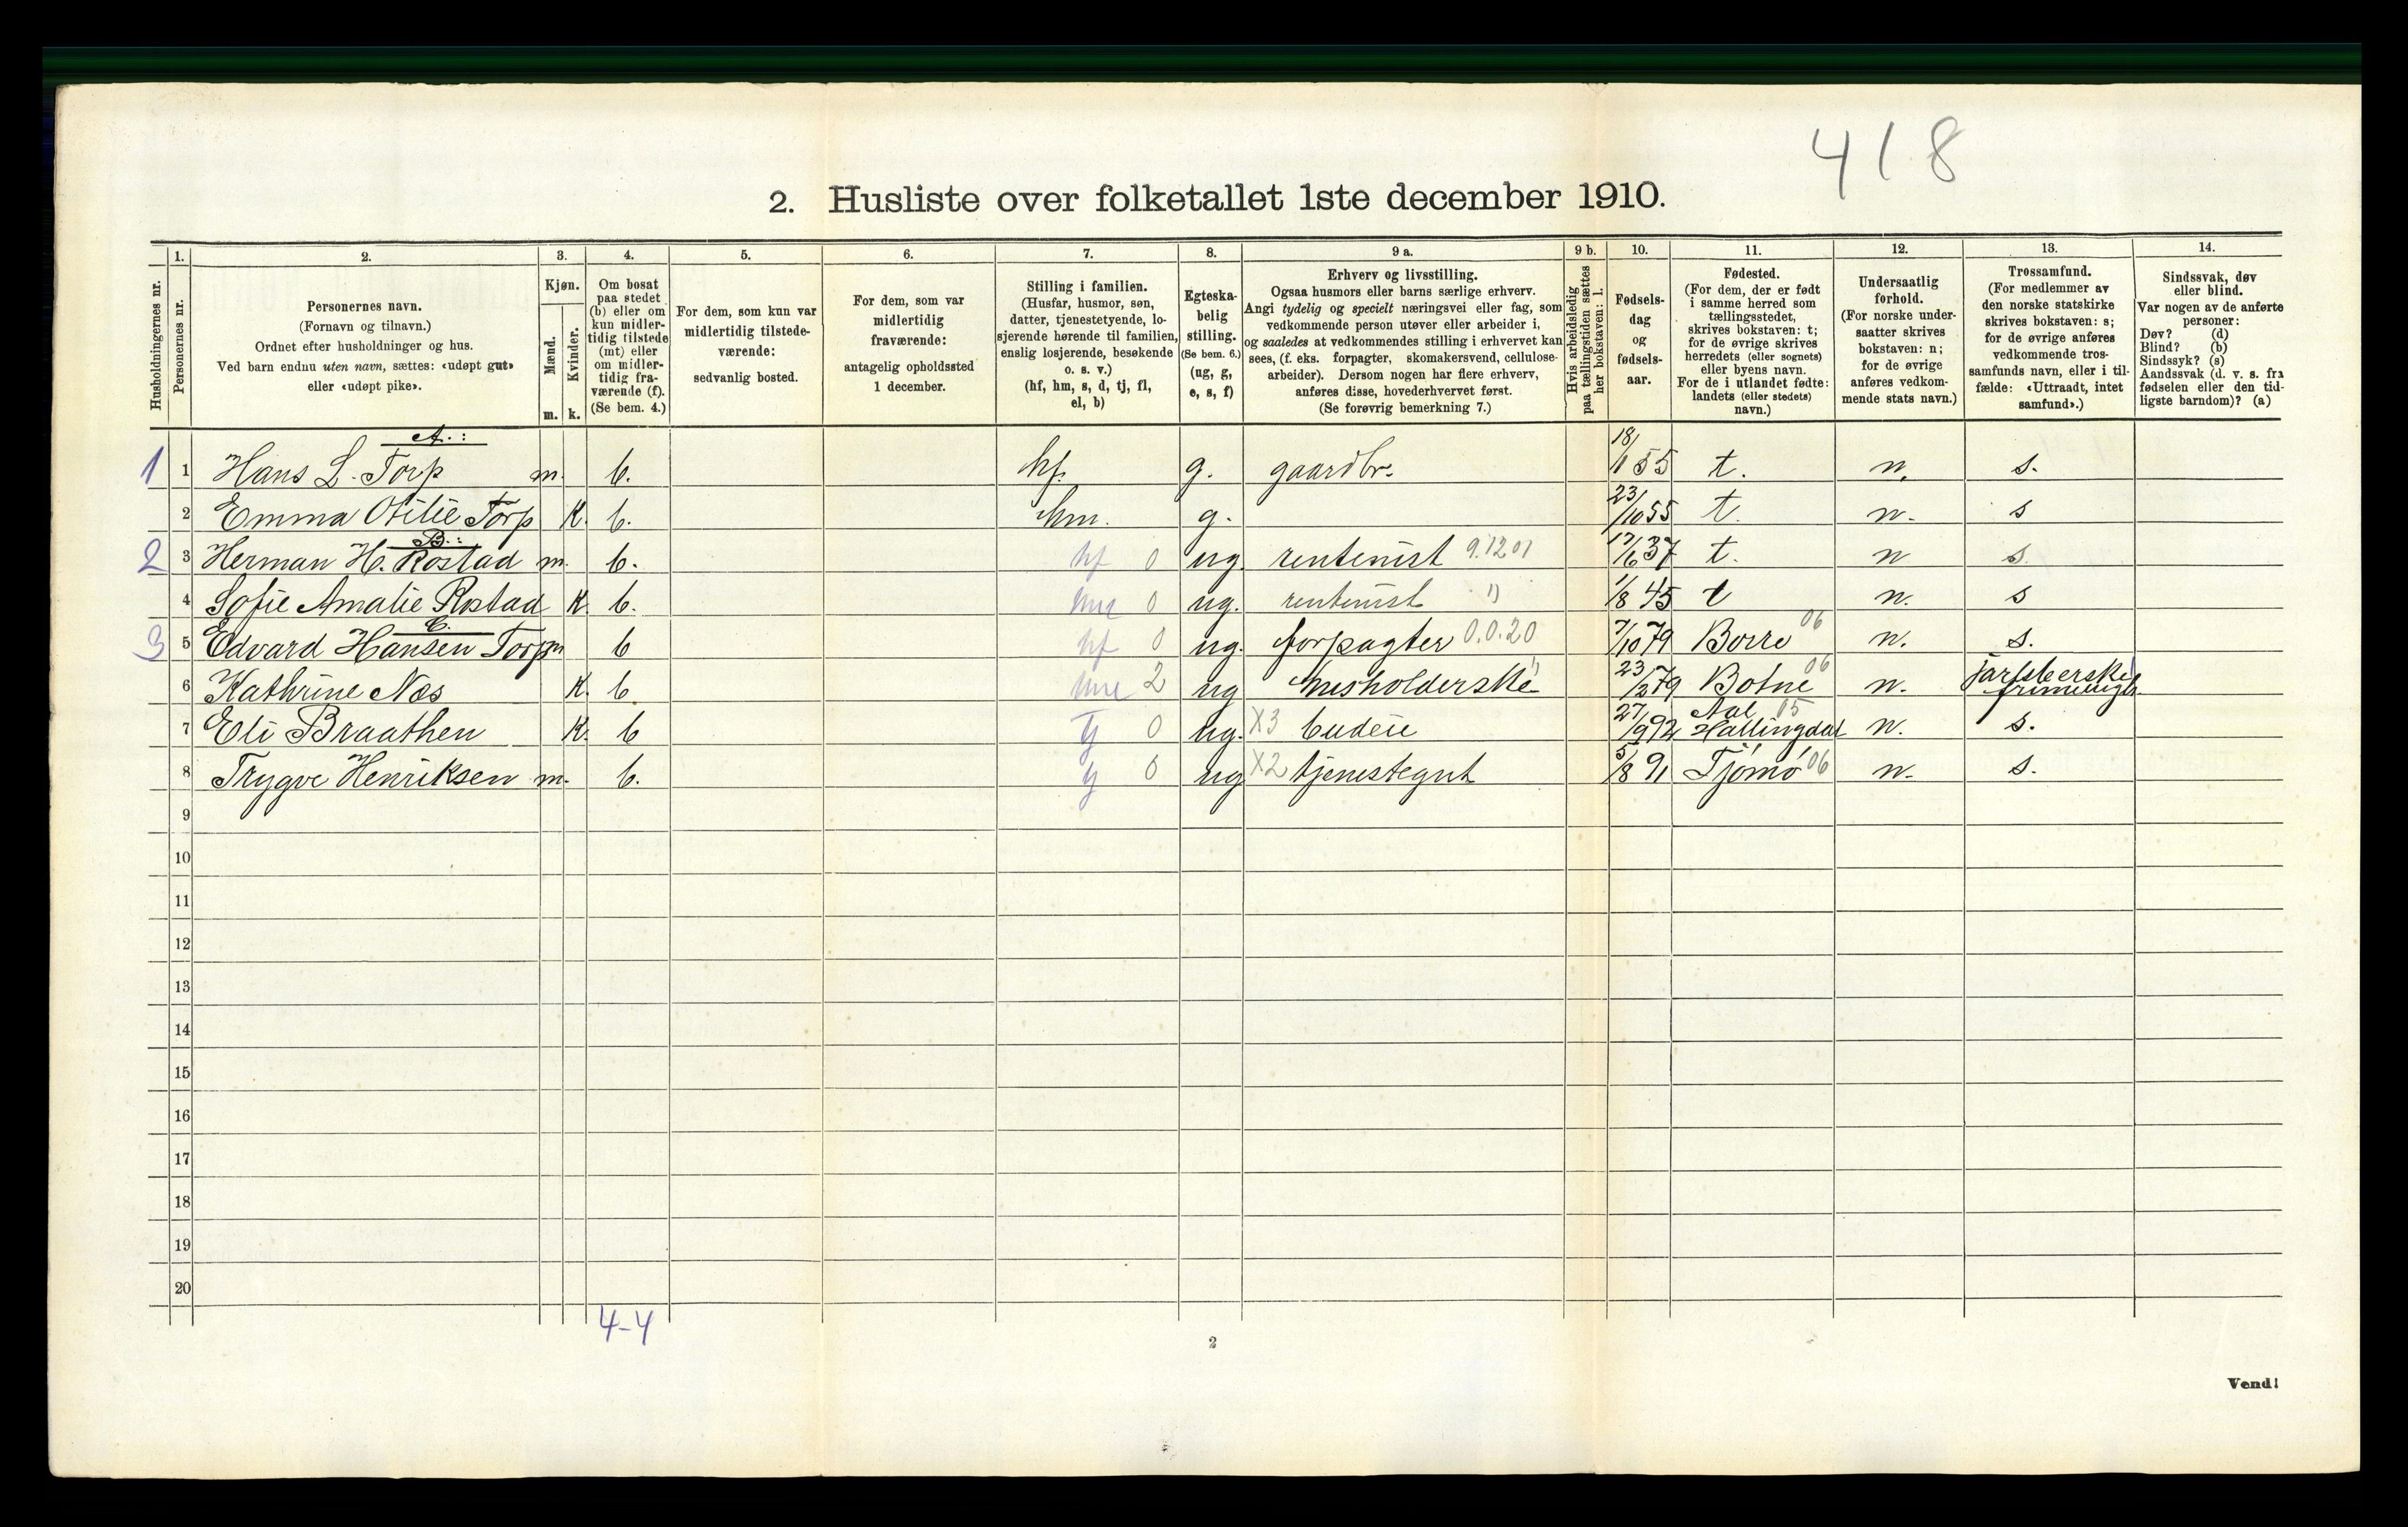 418
2. Husliste over folketallet 1ste december 1910.
Husholdningernes nr.
1.
Personernes nr.
2.
Personernes navn.
(Fornavn og tilnavn.)
Ordnet efter husholdninger og hus.
Ved barn endnu uten navn, sættes: «udøpt gut»
eller «udøpt pike».
3.
Kjøn.
Mænd.
Kvinder.
m. k.
4.
Om bosat
paa stedet
(b) eller om
kun midler-
tidig tilstede
(mt) eller
om midler-
tidig fra-
værende (f).
(Se bem. 4.)
5.
For dem, som kun var
midlertidig tilstede-
værende:
sedvanlig bosted.
6.
For dem, som var
midlertidig
fraværende:
antagelig opholdssted
1 december.
7.
Stilling i familien.
(Husfar, husmor, søn,
datter, tjenestetyende, lo-
sjerende hørende til familien,
enslig losjerende, besøkende
o. s. v.)
(hf, hm, s, d, tj, fl,
el, b)
8.
Egteska-
belig
stilling.
(Se bem. 6.)
(ug, g,
e, s, f)
9 a.
Erhverv og livsstilling.
Ogsaa husmors eller barns særlige erhverv.
Angi tydelig og specielt næringsvei eller fag, som
vedkommende person utøver eller arbeider i,
og saaledes at vedkommendes stilling i erhvervet kan
sees, (f. eks. forpagter, skomakersvend, cellulose-
arbeider). Dersom nogen har flere erhverv,
anføres disse, hovederhvervet først.
(Se forøvrig bemerkning 7.)
9 b.
Hvis arbeidsledig
paa tællingstiden sættes
her bokstaven: l.
10.
Fødsels-
dag
og
fødsels-
aar.
11.
Fødested.
(For dem, der er født
i samme herred som
tællingsstedet,
skrives bokstaven: t;
for de øvrige skrives
herredets (eller sognets)
eller byens navn.
For de i utlandet fødte:
landets (eller stedets)
navn.)
12.
Undersaatlig
forhold.
(For norske under-
saatter skrives
bokstaven: n;
for de øvrige
anføres vedkom-
mende stats navn.)
13.
Trossamfund.
(For medlemmer av
den norske statskirke
skrives bokstaven: s;
for de øvrige anføres
vedkommende tros-
samfunds navn, eller i til-
fælde: «Uttraadt, intet
samfund».)
14.
Sindssvak, døv
eller blind.
Var nogen av de anførte
personer:
Døv? (d)
Blind? (b)
Sindssyk? (s)
Aandssvak (d. v. s. fra
fødselen eller den tid-
ligste barndom)? (a)
A.:
1 1 Hans L. Torp m. b. hf. g. gaardbr. 18/1 55 t. n. s.
2 Emma Otilie Torp K. b. hm. g. 23/10 55 t. n. s
B.:
2 3 Herman H. Rostad m. b. hf 0 ug. rentenist 9.12 01 17/6 37 t. n s.
4 Sofie Amalie Rostad K. b. hm 0 ug. rentenist 1/8 45 t n. s
C.
3 5 Edvard Hansen Torp m b hf 0 ug. forpagter 0.0.20 7/10 79 Borre 06 n. s.
6 Kathrine Næs K. b hm 2 ug husholderske 23/2 79 Botne 06 n. jarlsberske
7 Eli Braathen K. b tj 0 ug. X3 budeie 27/9 92 Aal 05 Hallingdal n. s.
8 Trygve Henriksen m. b. tj 0 ug X2 tjenestegut 5/8 91 Tjømø 06 n. s.
9
10
11
12
13
14
15
16
17
18
19
20
4-4
2
Vend!